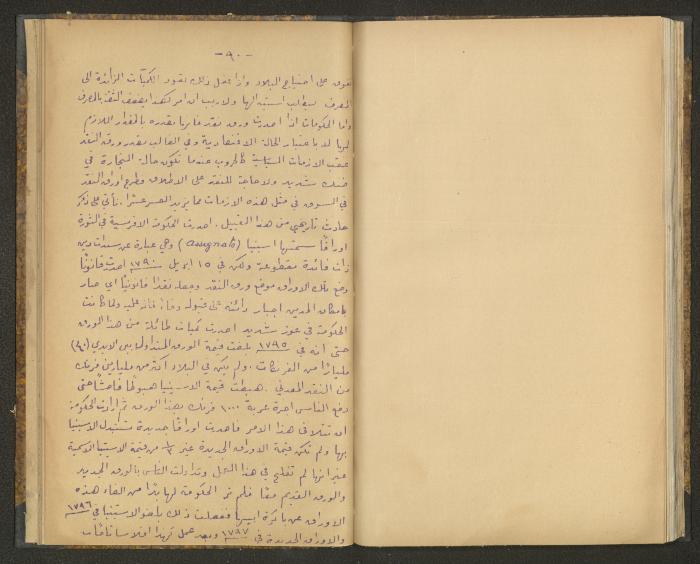 - ٩٠ -
تفوق على احتياج البلاد واذا فعل ذلك تعود الكميات الزائدة الى
المصرف لطلب استبدالها ولا ريب ان امر كهذا يضعف الثقة بالمصرف
واما الحكومات اذا اصدرت ورق نقد فانها تصدره بالمقدار اللازم
لها لا باعتبار الحالة الاقتصادية وفي الغالب يصدر ورق النقد
عقب الازمات السياسية كالحروب عندما تكون حالة التجارة في
ضنك شديد ولا حاجة للنقد على الاطلاق وطرح اوراق النقد
في السوق في مثل هذه الازمات مما يزيد العسر عسرا. نأتي على ذكر
حادث تاريخي من هذا القبيل. اصدرت الحكومة الافرنسية في الثورة
اوراقًا سمتها اسينيا (assignats) وهي عبارة عن سندات دين
ذات فائدة مقطوعة ولكن في ١٥ ابريل ١٧٩٠ اصدرت قانونًا
وضع تلك الاوراق موضع ورق النقد وجعله نقدًا قانونيًا اي صار
بامكان المدين اجبار دائنه على قبوله وفاءً لما له عليه ولما كانت
الحكومة في عوز شديد اصدرت كميات طائلة من هذا الورق
حتى انه في ١٧٩٥ بلغت قيمة الورق المتداول بين الايدي (٤٠)
مليارًا من الفرنكات ولم يكن في البلاد اكثر من مليارين فرنك
من النقد المعدني. هبطت قيمة الاسينيا هبوطًا فاحشًا حتى
دفع الناس اجرة عربة ١٠٠٠ فرنك بهذا الورق ثم ارادت الحكومة
ان تتلافى هذا الامر فاصدرت اوراقًا جديدة تستبدل الاسينيا
بها ولم تكن قيمة الاوراق الجديدة غير من قيمة الاسينيا الاسمية
غير انها لم تفلح في هذا العمل وتداولت الناس بالورق الجديد
والورق القديم معًا فلم تر الحكومة لها بدًا من الغاء هذه
الاوراق عن بكرة ابيها ففعلت ذلك بالاسينيا في ١٧٩٦
والاوراق الجديدة في ١٧٩٧ ويعد عمل كهذا افلاسا تامًا